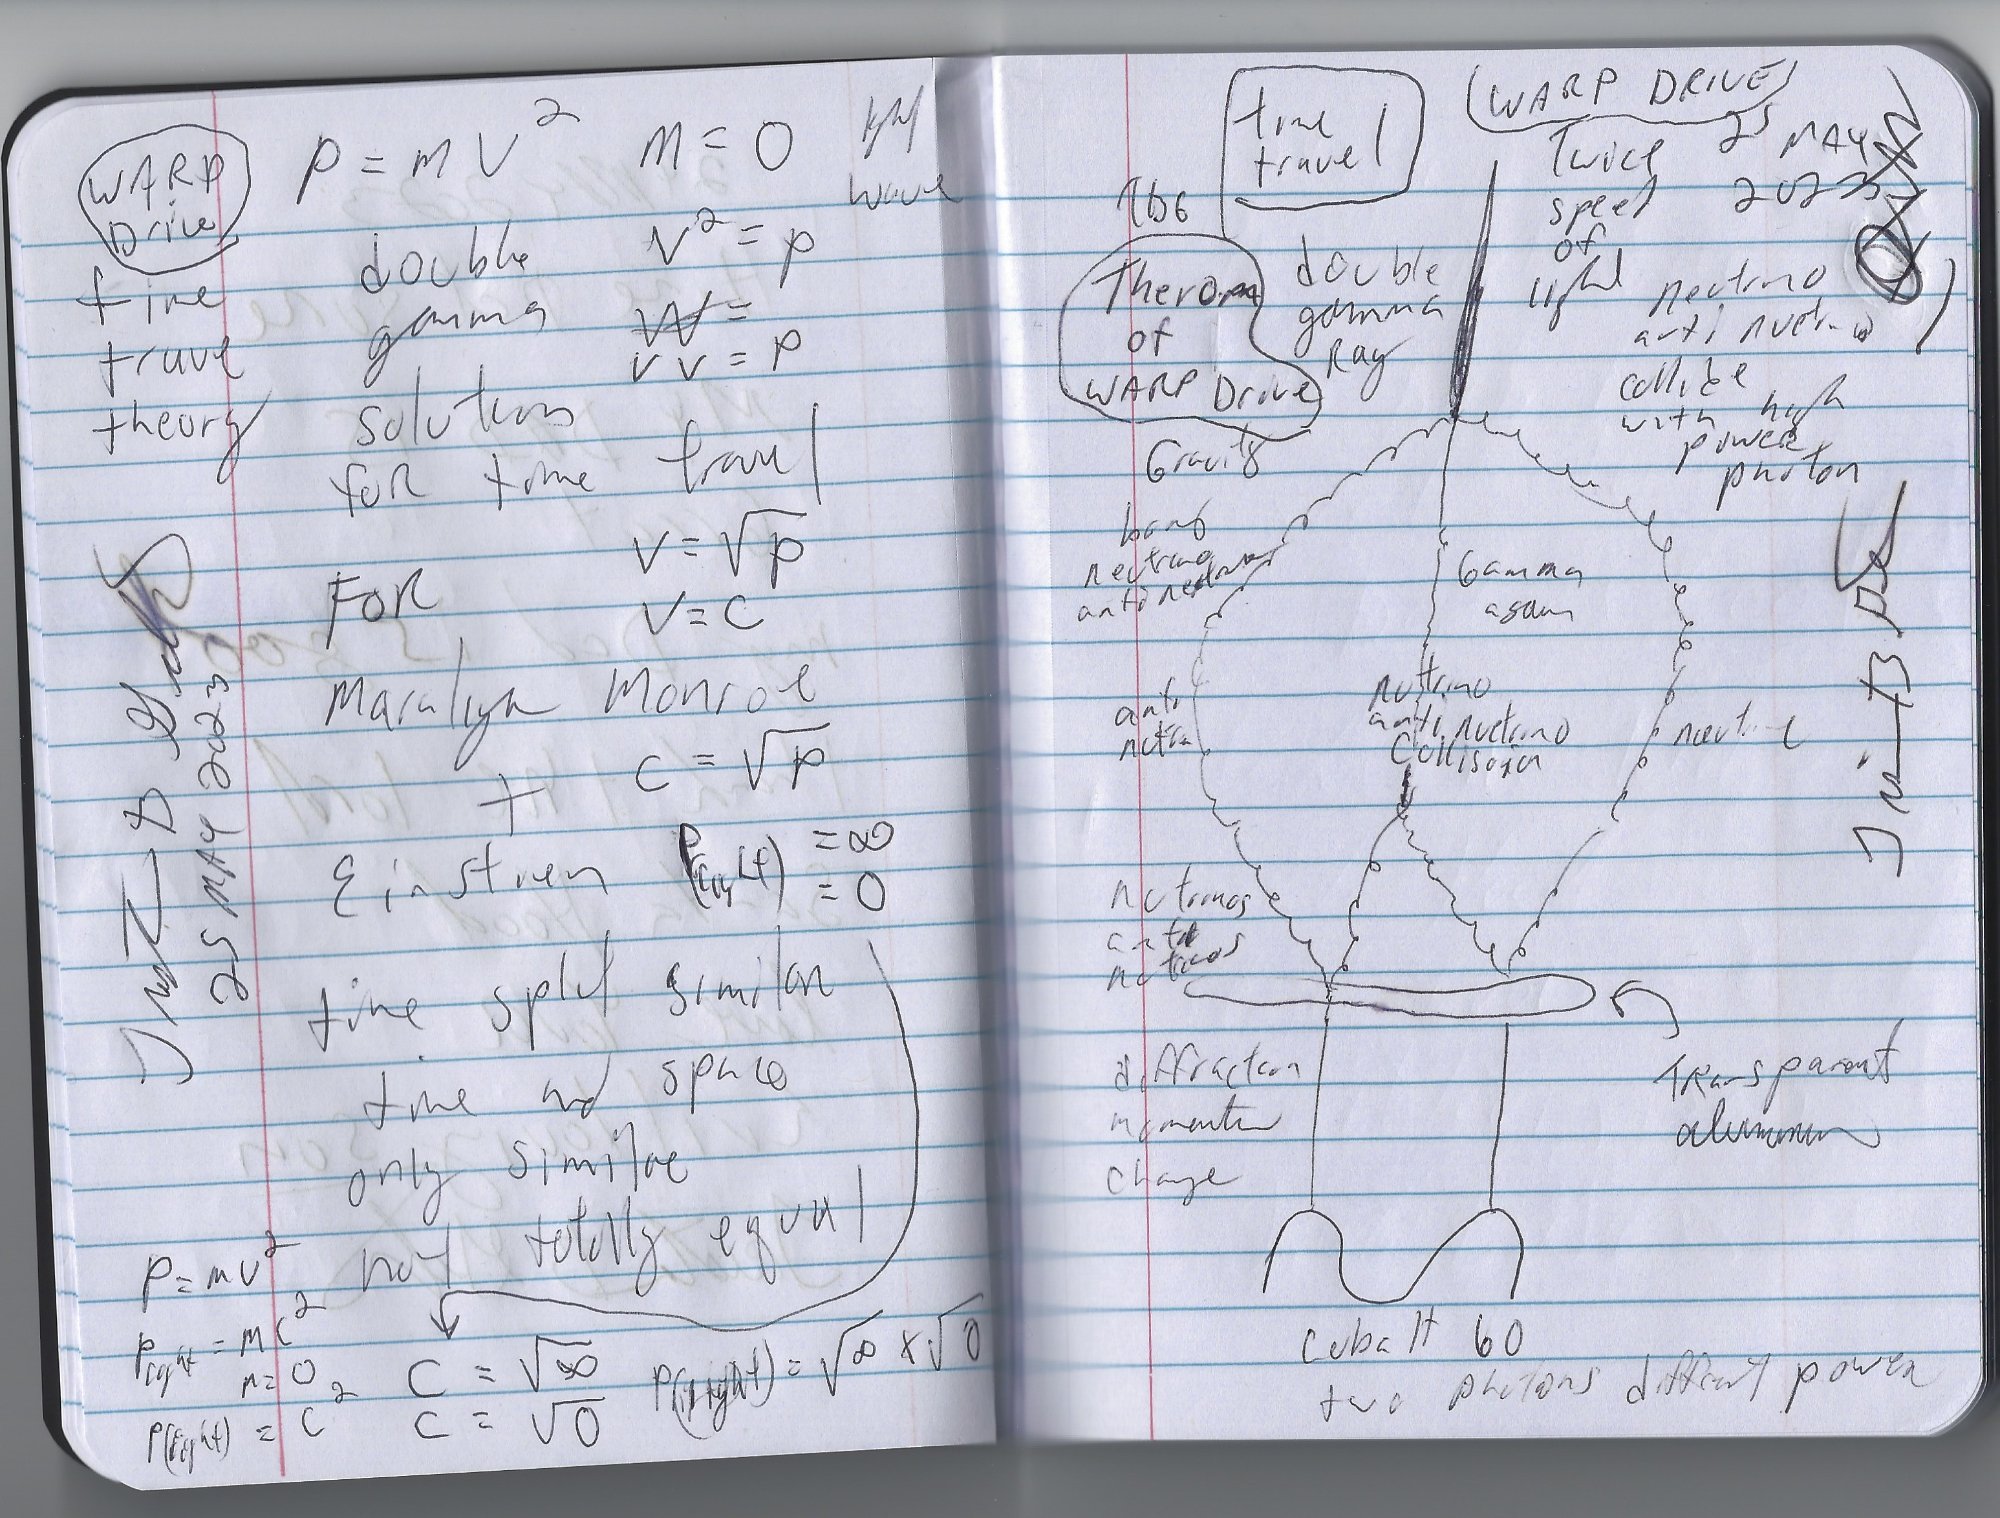 WARP
Drive
time
trave
theory
p = mv²
m = 0
wave
double
gamma
solutions
for time travel
v² = p
vv = p
v = √p
v = c
FOR
Maralyn Monroe
+
Einstien
c = √p
p(light) = ∞
= 0
time split similar
time and space
only similae
not totally equal
25 MAY 2023
p = mv²
p light = mc²
m = 0
p(light) = c²
c = √∞
c = √0
p(light) = √∞ x √0
time
travel
WARP DRIVE
25 MAY
2023
Twice
speed
of
light
Therom
of
WARP Drive
double
gamma
Ray
neutrino
anti nuetrino
collide
with high
power
photon
Gravity
neutrino
Gamma
anti
nutrino
anti nuetrino
Collision
nutrinos
anti
diffraction
momentum
change
Transparent
aluminum
Cobalt 60
two photons different power